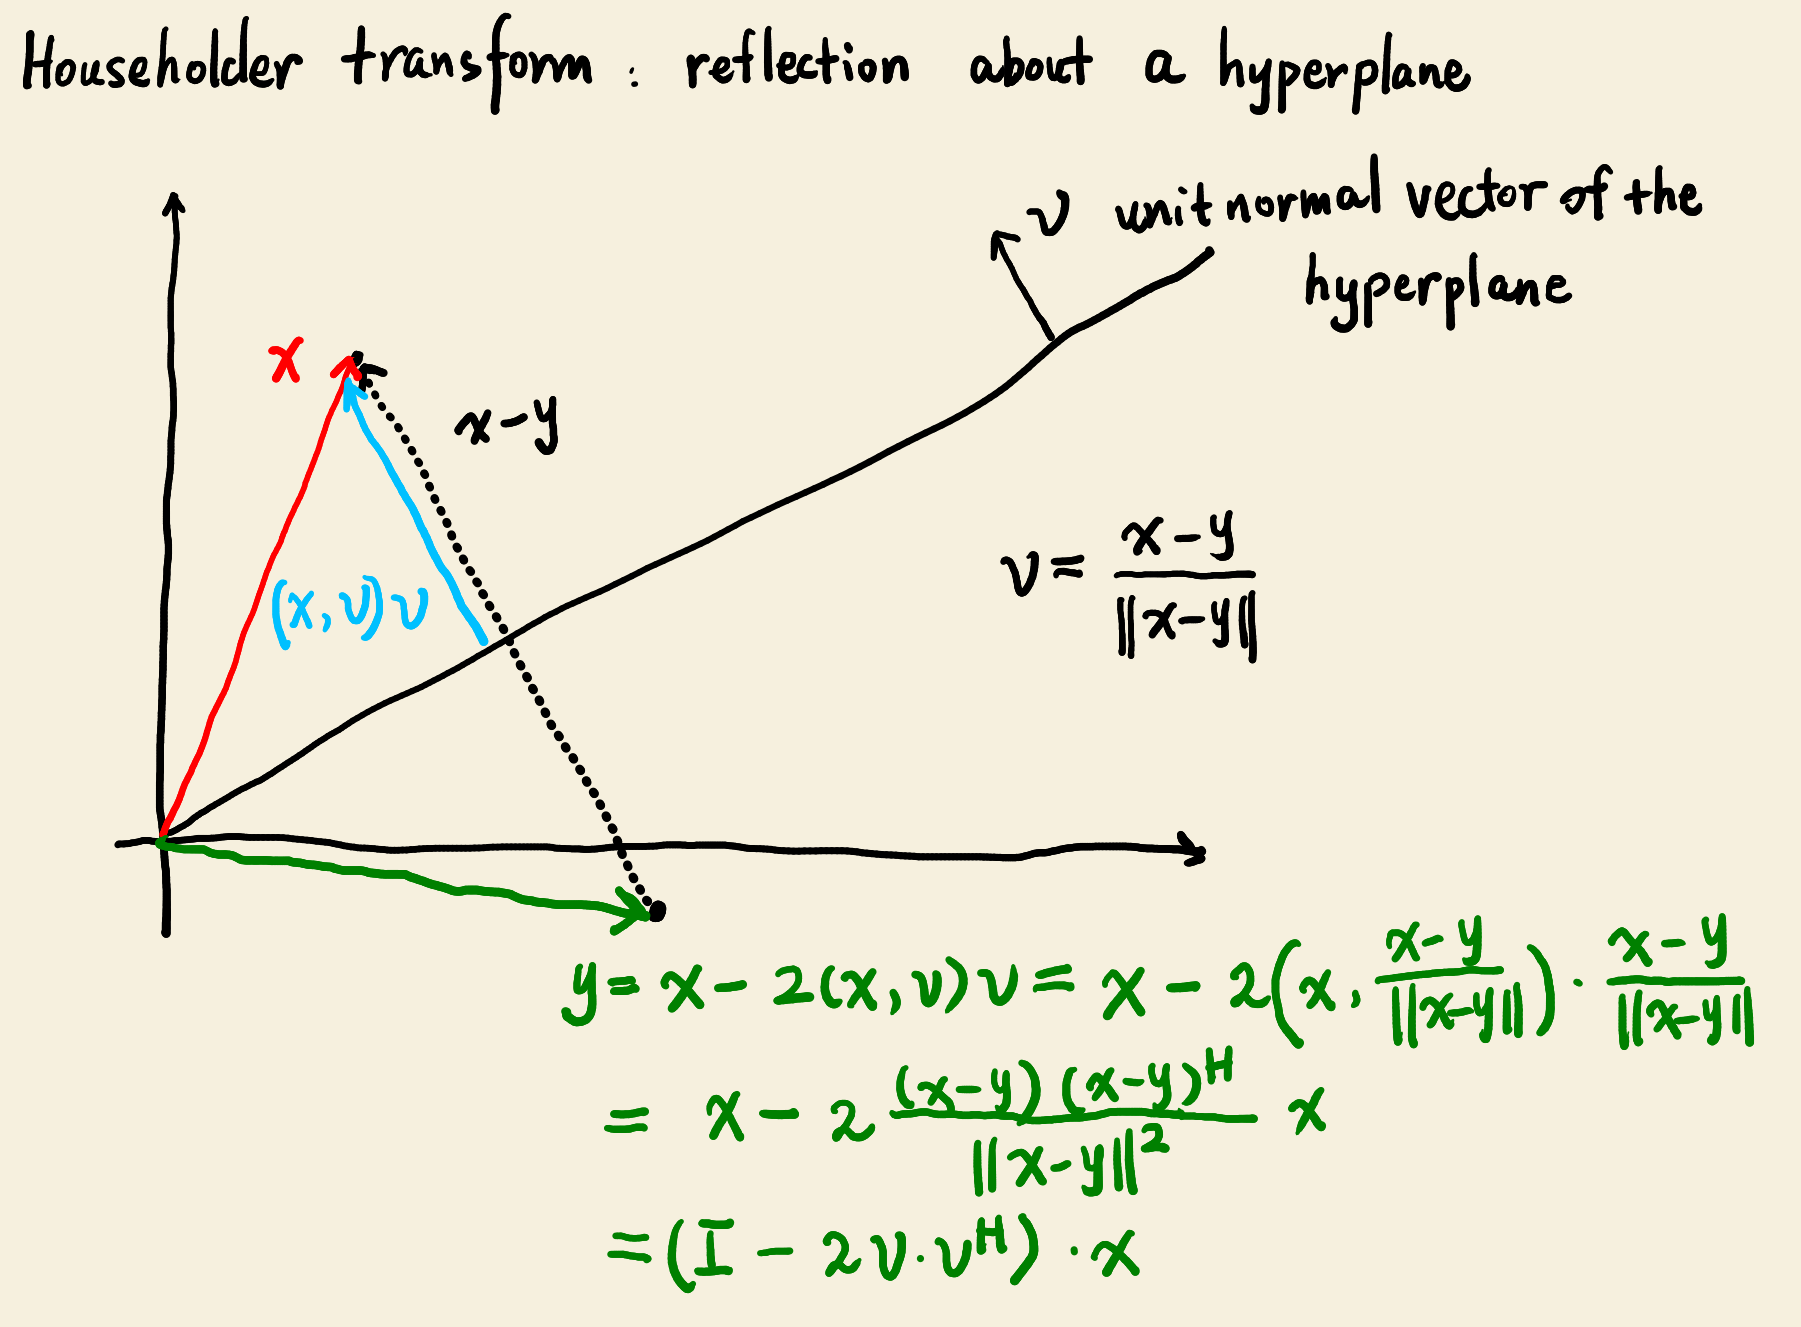 Householder transform : reflection about a hyperplane
ν unit normal vector of the
hyperplane
x
x-y
(x, ν) ν
ν = \frac{x-y}{||x-y||}
y = x - 2(x, ν) ν = x - 2(x, \frac{x-y}{||x-y||}) · \frac{x-y}{||x-y||}
= x - 2 \frac{(x-y)(x-y)^H}{||x-y||^2} x
= (I - 2 ν · ν^H) · x